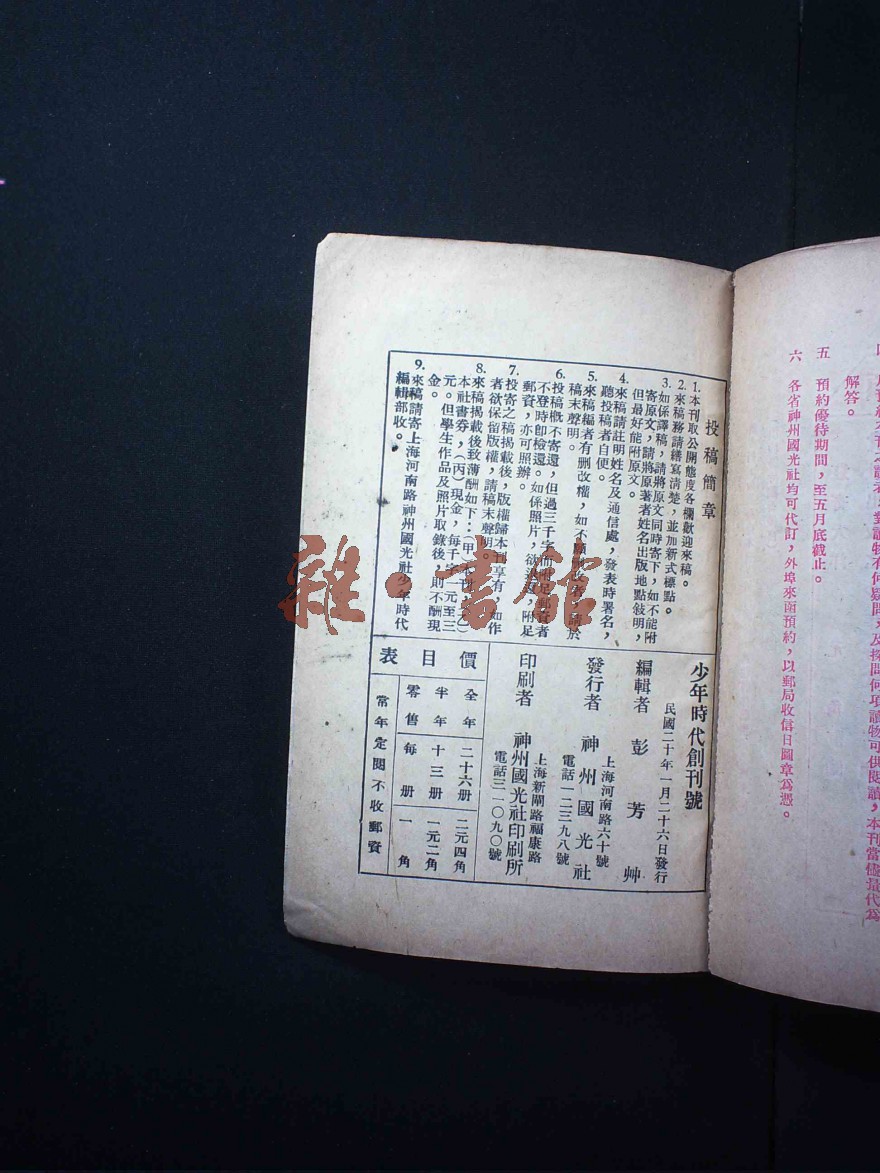 解答。
五　預約優待期間，至五月底截止。
六　各省神州國光社均可代訂，外埠來函預約，以郵局收信日圖章為憑。
投稿簡章
1. 本刊取公開態度各欄歡迎來稿。
2. 來稿務請繕寫清楚，並加新式標點。
3. 如係譯稿，請將原文同時寄下，如不能附
寄原文，請將原著者姓名出版地點敍明，
但最好能附原文。
4. 來稿請註明姓名及通信處，發表時署名，
聽投稿者自便。
5. 來稿編者有刪改權，如不願刪改者，請於
稿末聲明。
6. 投稿概不寄還，但過三千字而附足郵資者
不登時即檢還。如係照片，欲沒還，附足
郵資，亦可照辦。
7. 投寄之稿揭載後，版權歸本刊享有，如作
者欲保留版權，請稿末聲明。
8. 來稿揭載後致薄酬如下：（甲）本刊（乙）
本社書券，（丙）現金，每千字一元至三
元。但學生作品及照片取錄後，則不酬現
金。
9. 來稿請寄上海河南路神州國光社少年時代
編輯部收。
少年時代創刊號
民國二十年一月二十六日發行
編輯者　彭芳艸
上海河南路六十號
發行者　神州國光社
電話一二三九八號
上海新閘路福康路
印刷者　神州國光社印刷所
電話三一〇九〇號
價目表
全年　二十六册　二元四角
半年　十三册　一元二角
零售　每册　一角
常年定閱不收郵資
雜·書館